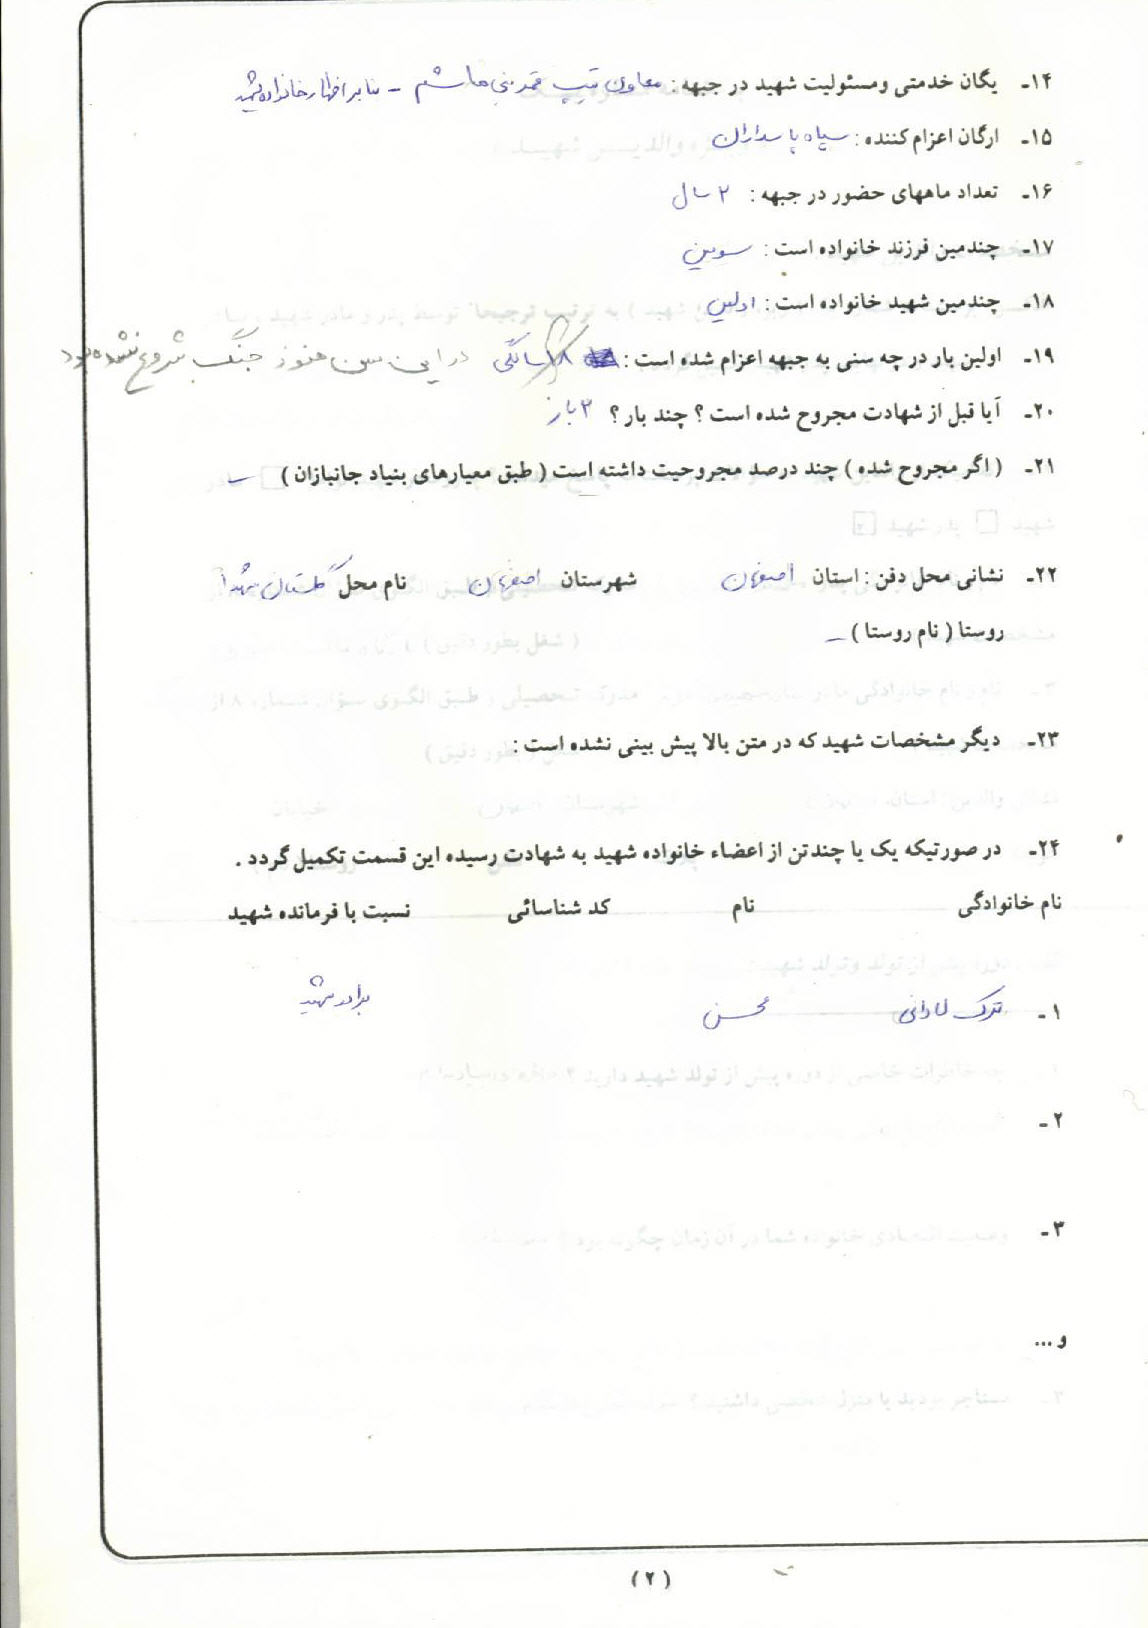 ۱۴ـ یگان خدمتی ومسئولیت شهید در جبهه : معاون تیپ قمر بنی هاشم – بنا بر اظهار خانواده شهید
۱۵ـ ارگان اعزام کننده : سپاه پاسداران
۱۶ـ تعداد ماههای حضور در جبهه : ۲ سال
۱۷ـ چندمین فرزند خانواده است : سومین
۱۸ـ چندمین شهید خانواده است : اولین
۱۹ـ اولین بار در چه سنی به جبهه اعزام شده است : ۱۸ سالگی در این سن هنوز جنگ شروع نشده بود
۲۰ـ آیا قبل از شهادت مجروح شده است ؟ چند بار ؟ ۳ بار
۲۱ـ ( اگر مجروح شده ) چند درصد مجروحیت داشته است ( طبق معیارهای بنیاد جانبازان ) ـ
۲۲ـ نشانی محل دفن : استان اصفهان شهرستان اصفهان نام محل گلستان شهدا
روستا ( نام روستا ) ـ
۲۳ـ دیگر مشخصات شهید که در متن بالا پیش بینی نشده است :
۲۴ـ در صورتیکه یک یا چندتن از اعضاء خانواده شهید به شهادت رسیده این قسمت تکمیل گردد .
نام خانوادگی نام کد شناسائی نسبت با فرمانده شهید
۱ـ ترک لادانی محسن برادر شهید
۲ـ
۳ـ
و ...
( ۲ )